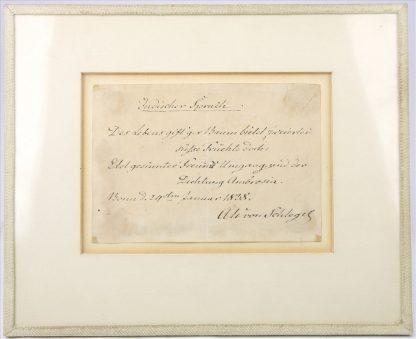 Indischer Spruch.
Des Lebens gift'ger Baum bietet zweierlei
süße Früchte doch:
Edel gesinnter Freunde Umgang, und der
Dichtung Ambrosia.
Bonn d. 29sten Januar 1838.
AW von Schlegel